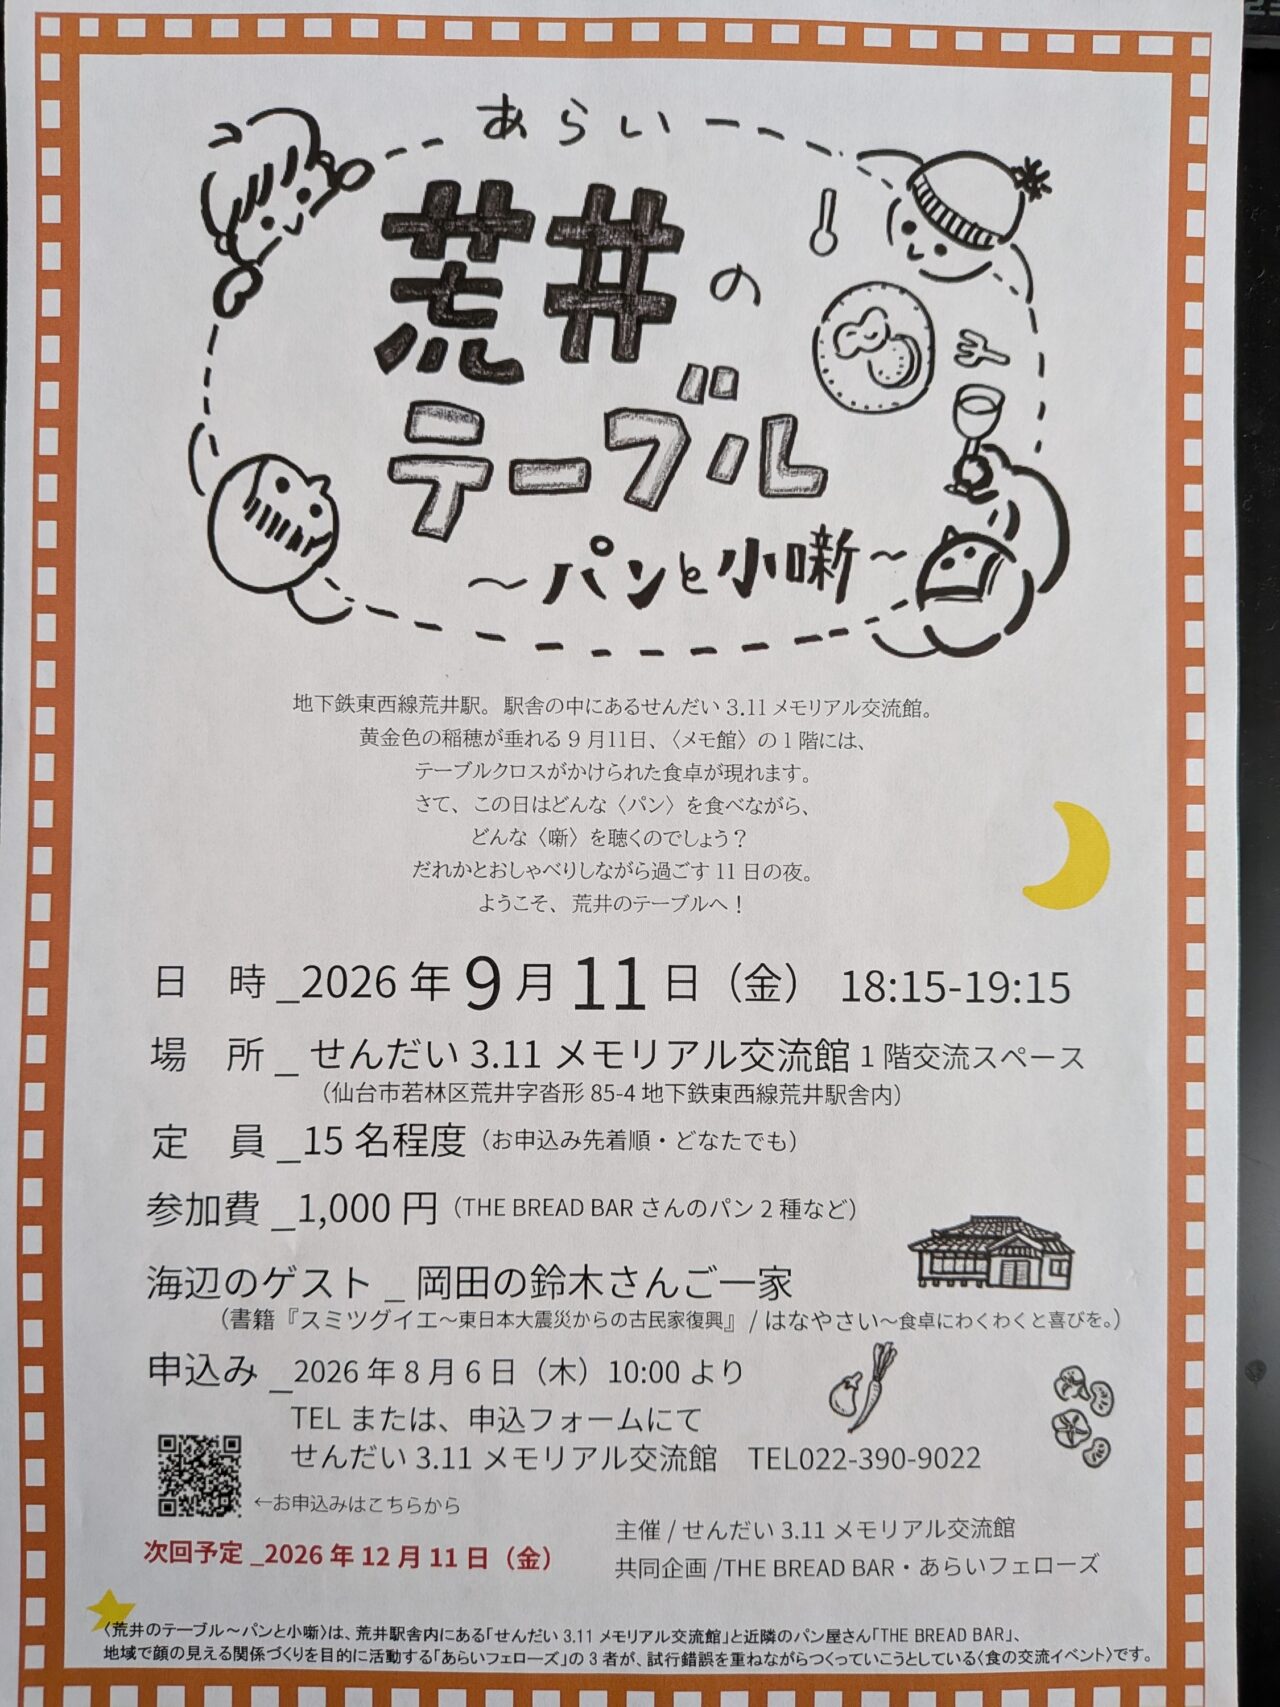 あらい
荒井の
テーブル
～パンと小噺～
地下鉄東西線荒井駅。駅舎の中にあるせんだい 3.11 メモリアル交流館。
黄金色の稲穂が垂れる 9 月11日、〈メモ館〉の 1 階には、
テーブルクロスがかけられた食卓が現れます。
さて、この日はどんな〈パン〉を食べながら、
どんな〈噺〉を聴くのでしょう？
だれかとおしゃべりしながら過ごす 11 日の夜。
ようこそ、荒井のテーブルへ！
日　時 _2026 年 9 月 11 日（金） 18:15-19:15
場　所 _ せんだい 3.11 メモリアル交流館 1 階交流スペース
（仙台市若林区荒井字沓形 85-4 地下鉄東西線荒井駅舎内）
定　員 _15 名程度（お申込み先着順・どなたでも）
参加費 _1,000 円（THE BREAD BAR さんのパン 2 種など）
海辺のゲスト _ 岡田の鈴木さんご一家
（書籍『スミツグイエ～東日本大震災からの古民家復興』 / はなやさい～食卓にわくわくと喜びを。）
申込み _2026 年 8 月 6 日（木）10:00 より
TEL または、申込フォームにて
せんだい 3.11 メモリアル交流館　TEL022-390-9022
←お申込みはこちらから
主催 / せんだい 3.11 メモリアル交流館
次回予定 _2026 年 12 月 11 日（金）
共同企画 /THE BREAD BAR・あらいフェローズ
〈荒井のテーブル～パンと小噺〉は、荒井駅舎内にある「せんだい 3.11 メモリアル交流館」と近隣のパン屋さん「THE BREAD BAR」、
地域で顔の見える関係づくりを目的に活動する「あらいフェローズ」の 3 者が、試行錯誤を重ねながらつくっていこうとしている〈食の交流イベント〉です。